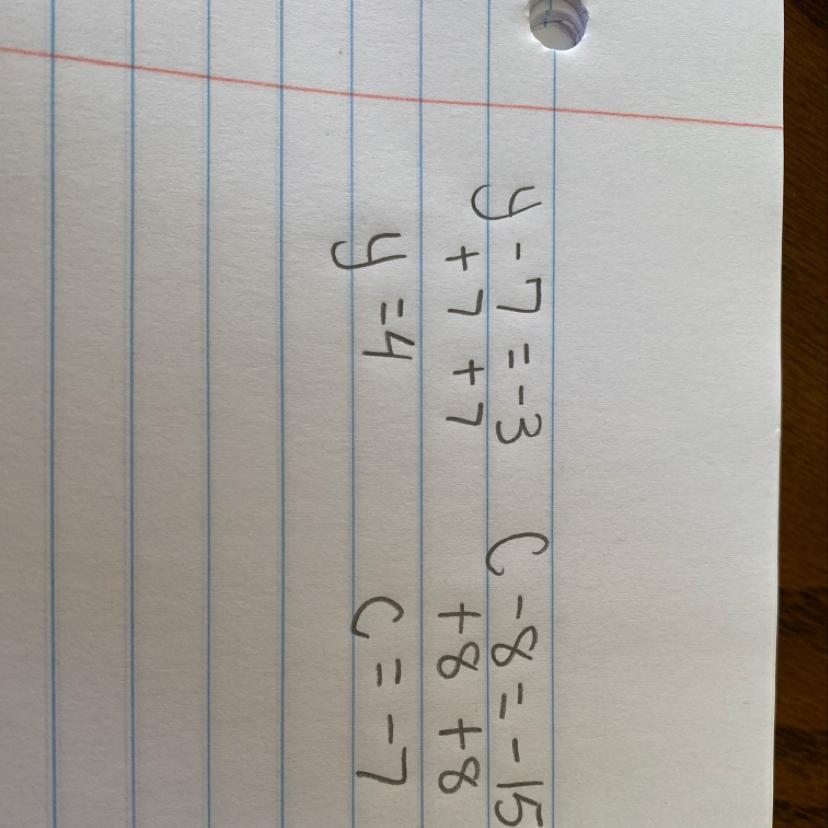 y - 7 = -3
+ 7 + 7
y = 4
C - 8 = - 15
+8 +8
C = - 7